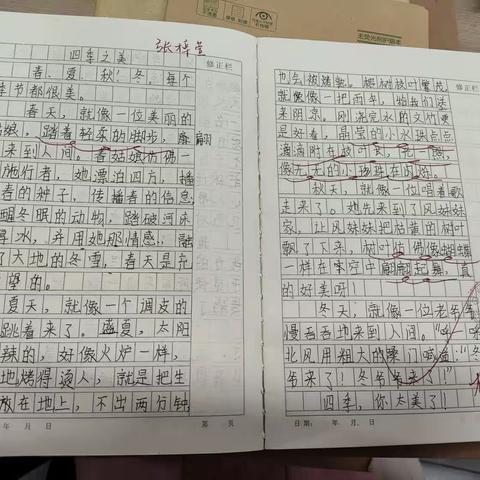 张梓莹
四季之美
修正栏
春、夏、秋、冬,每个
季节都很美。
春天,就像一位美丽的
姑娘,踏着轻柔的脚步,翩翩
来到人间。春姑娘仿佛一
施行者,她漂泊四方,播
春的种子,传播春的信息
醒冬眠的动物,踏破河床
得冰,并用她那情感,融
了大地的冬雪,春天是充
望的。
夏天,就像一个调皮的
跳着来了。盛夏,太阳
辣的,好像火炉一样,
地烤得烫人,就是把生
放在地上,不出两分钟
年 月 日
第 页
主受光照护眼本
修正栏
也会被烤熟。樱树枝叶繁茂
就像一把雨伞,给我们送
来阴凉。刚浇完水的文竹更
是好看,晶莹的小水珠点点
滴滴附在枝叶
秋天,就像一位唱着歌
走来了。她先来到了风妹妹
家,让风妹妹把枯黄的树叶
飘了下来,树叶仿佛像蝴蝶
一样在高空中翩翩起舞,真
的好美呀!
冬天,就像一位老爷爷
慢吞吞地来到人间。“呼呼
北风用粗大的嗓门喊道:“冬
爷来了!冬爷爷来了!”
四季,你太美了!
日期: 年 月 日